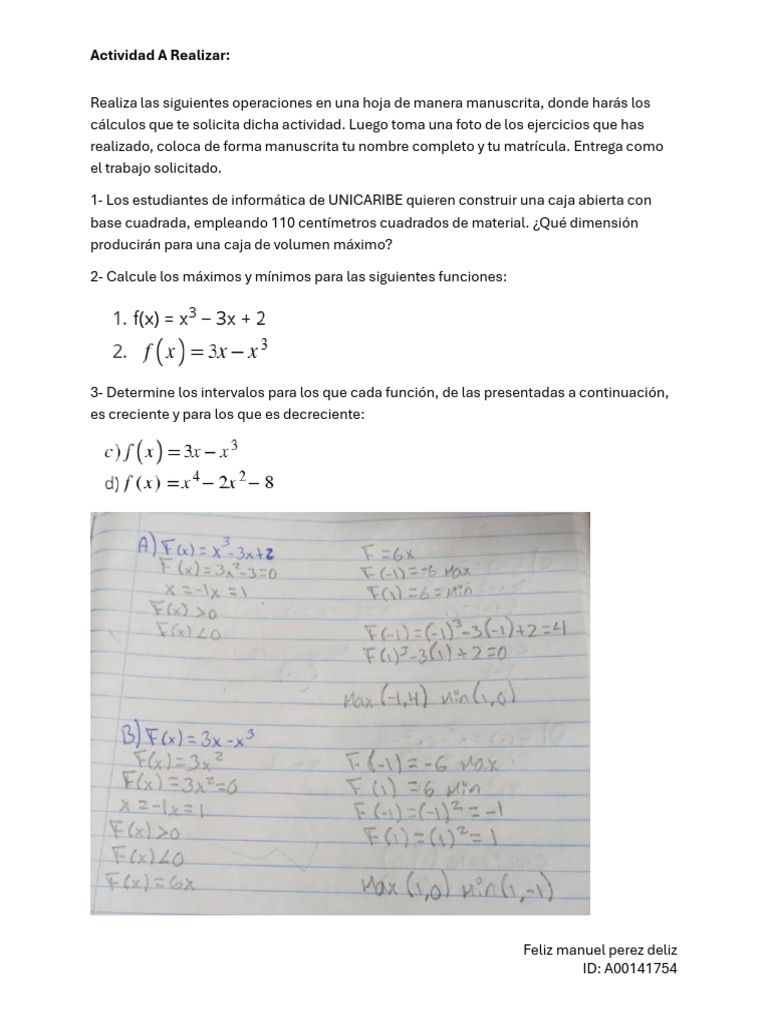 Actividad A Realizar:
Realiza las siguientes operaciones en una hoja de manera manuscrita, donde harás los
cálculos que te solicita dicha actividad. Luego toma una foto de los ejercicios que has
realizado, coloca de forma manuscrita tu nombre completo y tu matrícula. Entrega como
el trabajo solicitado.
1- Los estudiantes de informática de UNICARIBE quieren construir una caja abierta con
base cuadrada, empleando 110 centímetros cuadrados de material. ¿Qué dimensión
producirán para una caja de volumen máximo?
2- Calcule los máximos y mínimos para las siguientes funciones:
1. f(x) = x³ – 3x + 2
2. f(x) = 3x − x³
3- Determine los intervalos para los que cada función, de las presentadas a continuación,
es creciente y para los que es decreciente:
c) f(x) = 3x − x³
d) f(x) = x⁴ − 2x² − 8
A) F(x) = x³-3x+2
F(x) = 3x²-3=0
x = -1x = 1
F(x) >0
F(x) <0
F = 6x
F(-1) = -6 Max
F(1) = 6 = Min
F(-1) = (-1)³-3(-1)+2 = 4
F(1)³-3(1)+2 = 0
Max(-1,4) Min(1,0)
B) F(x) = 3x-x³
F(x) = 3x²
F(x) = 3x²=0
x = -1x = 1
F(x) >0
F(x) <0
F(x) = 6x
F(-1) = -6 Max
F(1) = 6 Min
F(-1) = (-1)² = -1
F(1) = (1)² = 1
Max(1,0) Min(1,-1)
Feliz manuel perez deliz
ID: A00141754